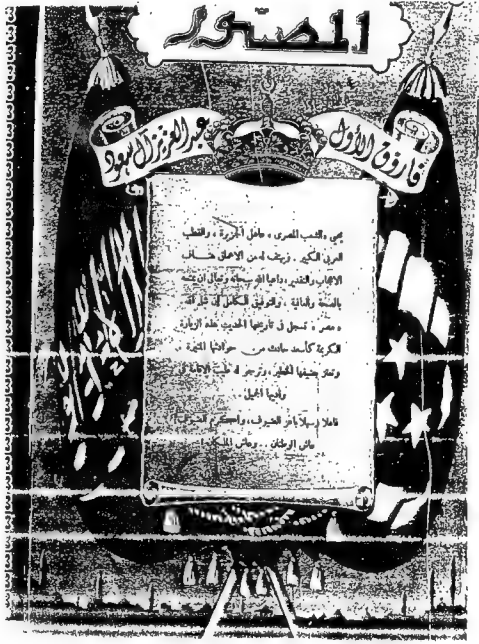 المصور
فاروق الأول
عبد العزيز آل سعود
يحيي الشعب المصري، عاهل الجزيرة، والقطب
العربي الكبير. ويتحف له من الأعماق
الاعجاب والتقدير، داعيا الله سبحانه وتعالى ان
بالصحة والهناية. والتوفيق الكامل في
« مصر » تسجل في تاريخها الحديث هذه الزيارة
الكريمة كأسعد حادث من حوادثها المثيرة،
وتعتز بضيفها الخطير، وترجو له طيب الاقامة في
واديها الجميل..
فأهلا وسهلا بأعز الضيوف، وأكرم الضيوف
عاش الوطنان.. وعاش الملكان!